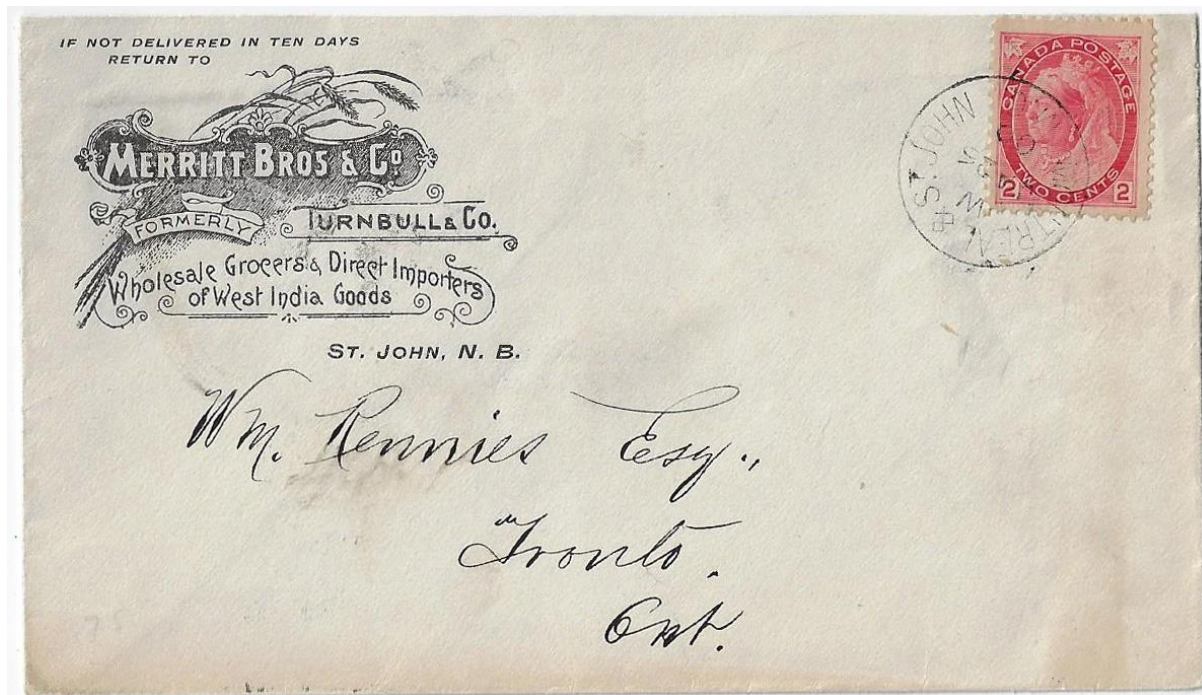 IF NOT DELIVERED IN TEN DAYS
RETURN TO
MERRITT BROS & Co
FORMERLY TURNBULL & CO.
Wholesale Grocers & Direct Importers
of West India Goods
ST. JOHN, N. B.
CANADA POSTAGE
2 TWO CENTS 2
ST. JOHN
Wm. Rennies Esq.,
Tronto.
Ont.